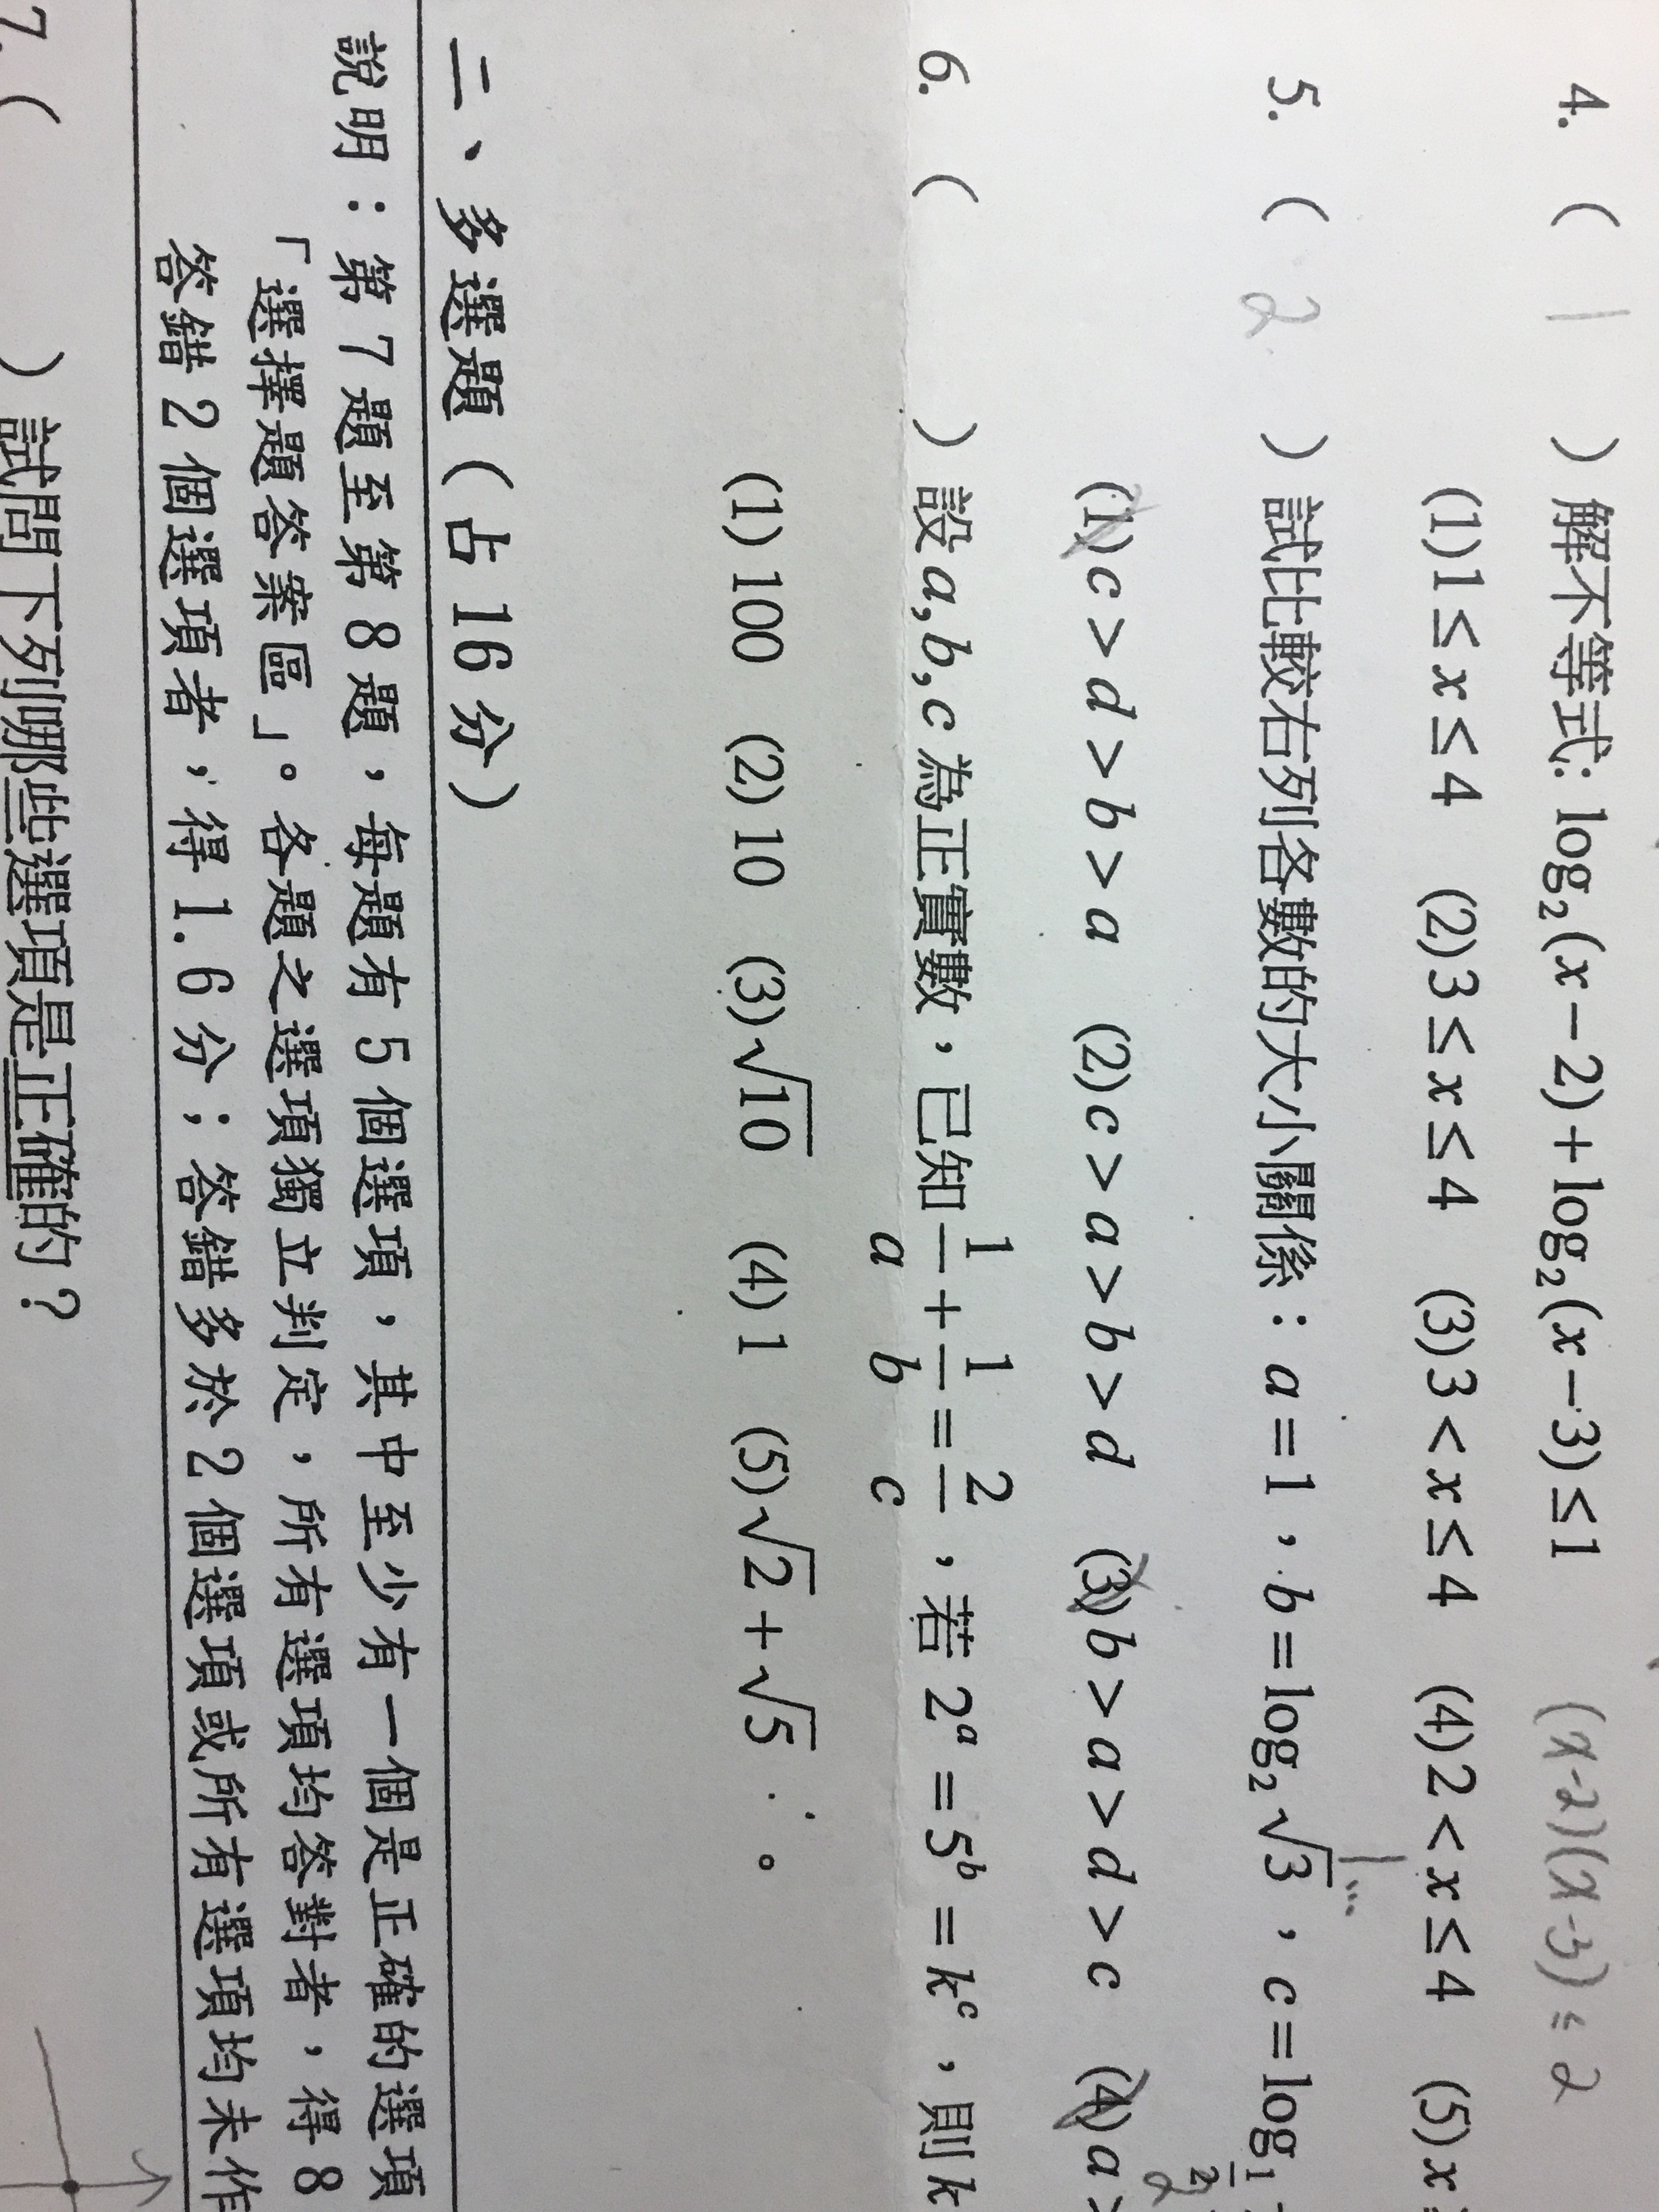 4. ( 1 ) 解不等式: log₂(x−2)+log₂(x−3)≤1 (x-2)(x-3) ≤ 2
(1)1≤x≤4 (2)3≤x≤4 (3)3<x≤4 (4)2<x≤4 (5)x
5. ( 2 ) 試比較右列各數的大小關係：a=1，b=log₂√3，c=log
1...
(1)c>d>b>a (2)c>a>b>d (3)b>a>d>c (4)a>
6. ( ) 設a,b,c為正實數，已知1/a+1/b=2/c，若2ᵃ=5ᵇ=kᶜ，則k
(1)100 (2)10 (3)√10 (4)1 (5)√2+√5 。
二、多選題（占16分）
說明：第7題至第8題，每題有5個選項，其中至少有一個是正確的選項
「選擇題答案區」。各題之選項獨立判定，所有選項均答對者，得8
答錯2個選項者，得1.6分；答錯多於2個選項或所有選項均未作
7. ( ) 試問下列哪些選項是正確的？